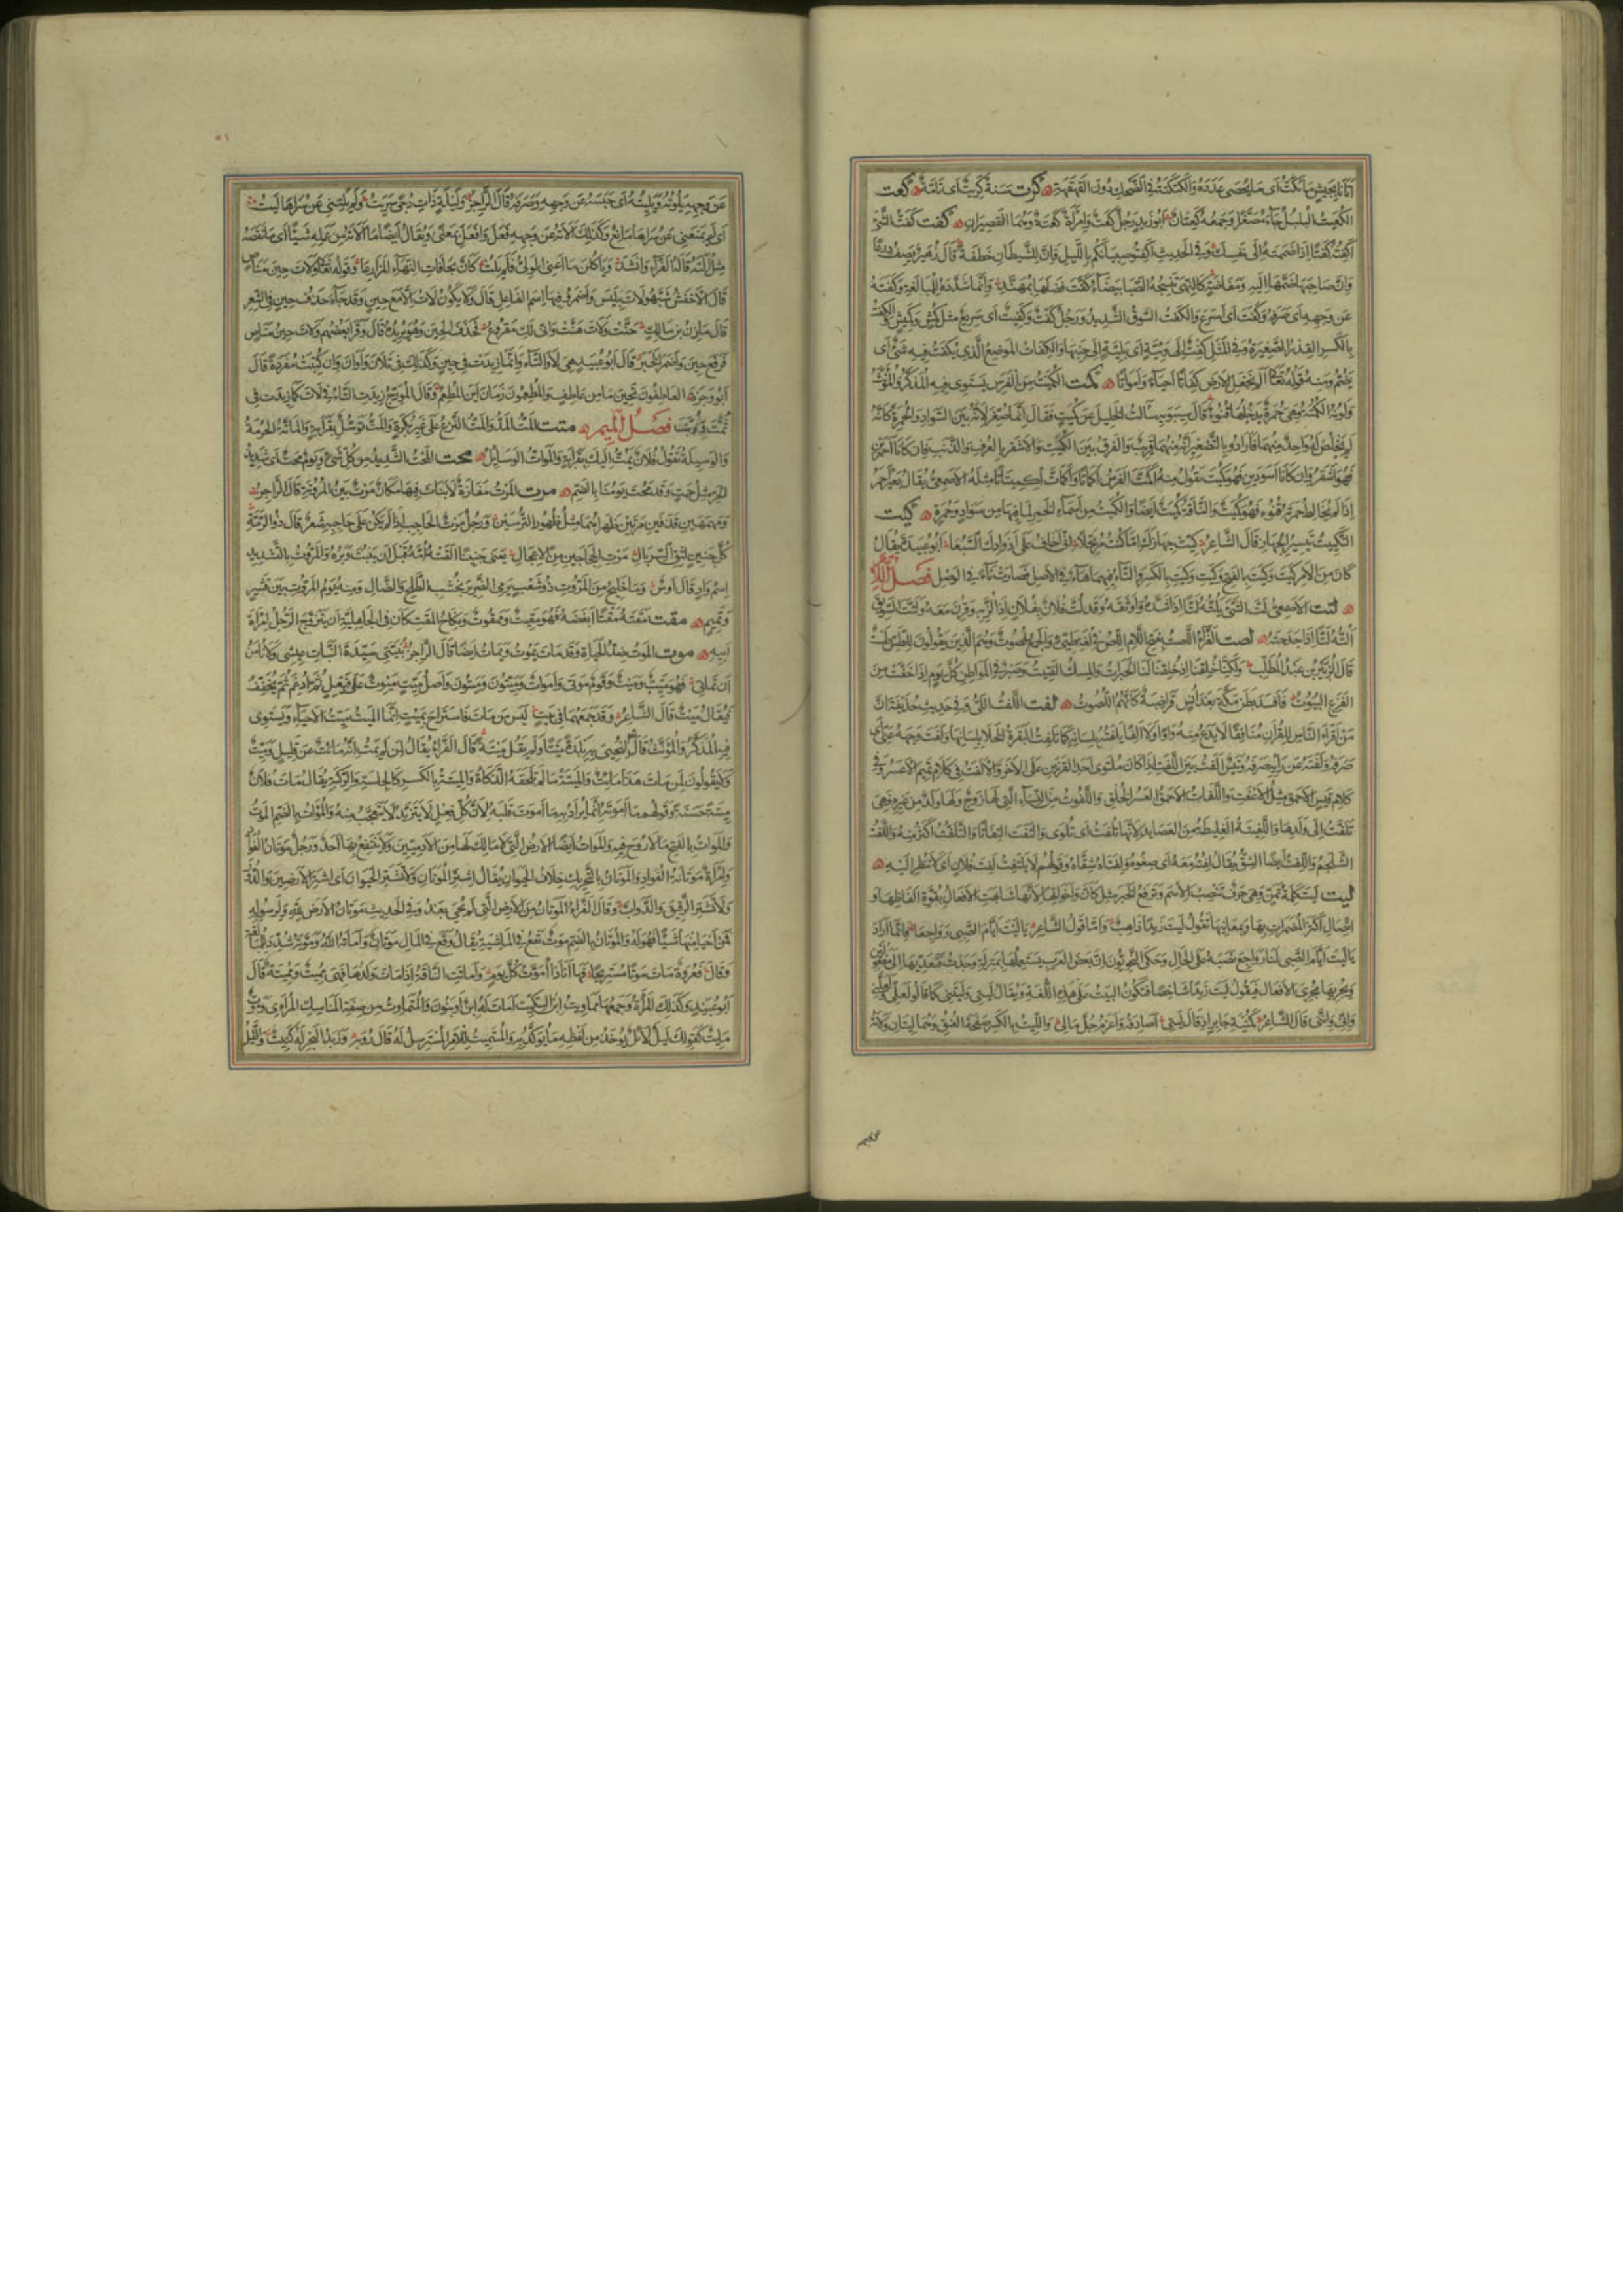 أتانا بجيش ما يكت أى ما يحصى عدده والكتكتة فى الضحك دون القهقهة كرت سنة كريت أى تامة كعت
الكعيت البلبل جاء مصغرا وجمعه كعتان أبو زيد رجل كعت وامرأة كعتة وهما القصيران كفت كفت الشئ
أكفته كفتا اذا ضممته الى نفسك وفى الحديث اكفتوا صبيانكم بالليل فان للشيطان خطفة قال زهير يصف درعا
وان صاحبها ضمها اليه ومفاضة كالنهى تنسجه الصبا بيضاء كفت فضلها بمهند وانما شدده للمبالغة وكفته
عن وجهه أى صرفه وكفت أى أسرع والكفت السوق الشديد ورجل كفت وكفيت أى سريع مثل كمش وكميش والكفت
بالكسر القدر الصغيرة وفى المثل كفت الى وئية أى بلية الى جنبها والكفات الموضع الذى يكفت فيه شئ أى
يضم ومنه قوله تعالى ألم نجعل الأرض كفاتا أحياء وأمواتا كمت الكميت من الفرس يستوى فيه المذكر والمؤنث
ولونه الكمتة وهى حمرة يدخلها قنوء قال سيبويه سالت الخليل عن كميت فقال انما صغر لانه بين السواد والحمرة كانه
لم يخلص له واحد منهما فارادوا بالتصغير انه منهما قريب والفرق بين الكميت والاشقر بالعرف والذنب فان كانا أحمرين
فهو أشقر وان كانا أسودين فهو كميت تقول منه أكمت الفرس اكماتا واكمات اكميتاتا مثله الاصمعى يقال بعير أحمر
اذا لم يخالط حمرته قنوء فهو كميت والناقة كميت أيضا والكميت من أسماء الخمر لما فيها من سواد وحمرة كيت
التكييت تيسير الجهاز قال الشاعر كيت جهازك اما كنت مرتحلا انى أخاف على أذوادك السبعا أبو عبيدة يقال
كان من الامر كيت وكيت بالفتح وكيت وكيت بالكسر والتاء فيهما هاء فى الاصل فصارت تاء فى الوصل فصل اللام
لتت الاصمعى لت الشئ يلته لتا اذا شده وأوثقه وقد لت فلان بفلان اذا لز به وقرن معه ولتت السويق
ألته لتا اذا جدحته لصت الفراء اللصت بفتح اللام اللص فى لغة طيئ والجمع لصوت وهم الذين يقولون للطس طست
قال الزبير بن عبد المطلب ولكنا خلقنا اذ خلقنا لنا الحبرات والمسك الفتيت وصبر فى المواطن كل يوم اذا خفت من
الفزع البيوت فافسد بطن مكة بعد أنس قراضبة كأنهم اللصوت لفت اللفت اللى وفى حديث حذيفة ان
من أقرأ الناس للقرآن منافقا لا يدع منه واوا ولا ألفا يلفته بلسانه كما تلفت البقرة الخلا بلسانها ولفت وجهه عنى أى
صرفه ولفته عن رأيه صرفه وتيس ألفت بين اللفت اذا كان ملتوى أحد القرنين على الآخر والالفت فى كلام تميم الاعسر وفى
كلام قيس الاحمق مثل الاعفت واللفات الاحمق العسر الخلق واللفوت من النساء التى لها زوج ولها ولد من غيره فهى
تلفت الى ولدها واللفيتة الغليظة من العصايد لانها تلفت أى تلوى والتفت التفاتا والتلفت أكثر منه واللفت
الشلجم واللفت أيضا الشق يقال لفته معه أى صفوه ولفتاه شقاه وقولهم لا يلتفت لفت فلان أى لا ينظر اليه
ليت ليت كلمة تمن وهى حرف تنصب الاسم وترفع الخبر مثل كان وأخواتها لانها شابهت الافعال بقوة ألفاظها و
اتصال أكثر المضمرات بها وبمعانيها تقول ليت زيدا ذاهب وأما قول الشاعر يا ليت أيام الصبى رواجعا فانما أراد
يا ليت أيام الصبى لنا رواجع نصبه على الحال وحكى النحويون ان بعض العرب يستعملها بمنزلة وجدت فيعديها الى مفعولين
ويجريها مجرى الافعال فيقول ليت زيدا شاخصا فيكون البيت على هذه اللغة ويقال ليتى وليتنى كما قالوا لعلى ولعلنى
وانى واننى قال الشاعر كمنية جابر اذ قال ليتى أصادفه وأغرم جل مالى والليت بالكسر صفحة العنق وهما ليتان ولاته
عن وجهه
٥١
عن وجهه يلوته ويليته أى حبسه عن وجهه وصرفه قال الراجز وليلة ذات دجى سريت ولم يلتنى عن سراها ليت
أى لم يمنعنى عن سراها مانع وكذلك ألاته عن وجهه فعل وأفعل بمعنى ويقال أيضا ما ألاته من عمله شيئا أى ما نقصه
مثل ألته قاله الفراء وأنشد وياكلن ما أعنى الولى فلم يلت كأن بحافات النهاء المزارعا وقوله تعالى ولات حين مناص
قال الاخفش شبهوا لات بليس وأضمروا فيها اسم الفاعل قال ولا يكون لات الا مع حين وقد جاء حذف حين فى الشعر
قال مازن بن مالك حنت ولات هنت وانى لك مقروع فحذف الحين وهو يريده قال وقرأ بعضهم ولات حين مناص
فرفع حين وأضمر الخبر قال أبو عبيد هى لا والتاء وانما زيدت فى حين وكذلك فى تلان وأوان وان كتبت مفردة قال
أبو وجزة العاطفون تحين ما من عاطف والمطعمون زمان أين المطعم وقال المورج زيدت التاء فى لات كما زيدت فى
ثمت وربت فصل الميم متت المت المد والمت النزع على غير بكرة والمت توسل بقرابة والماتة الحرمة
والوسيلة تقول فلان يمت اليك بقرابة والموات الوسايل محت المحت الشديد من كل شئ ويوم محت أى شديد
الحر مثل حمت وقد محت يومنا بالضم مرت المرت مفازة لا نبات فيها مكان مرت بين المروتة قال الراجز
ومهمهين قذفين مرتين ظهراهما مثل ظهور الترسين ورجل مرت الحاجب اذا لم يكن على حاجبه شعر قال ذو الرمة
كل جنين لثق السربال مرت الحجاجين من الاعجال يعنى جنينا ألقته أمه قبل أن ينبت وبره والمروت بالتشديد
اسم واد قال أوس وما خليج من المروت ذو شعب يرمى الضرير بخشب الطلح والضال ومنه يوم المروت بين قشير
وتميم مقت مقته مقتا أبغضه فهو مقيت وممقوت ونكاح المقت كان فى الجاهلية أن يتزوج الرجل امرأة
أبيه موت الموت ضد الحياة وقد مات يموت ويمات أيضا قال الراجز بنيتى سيدة البنات عيشى ولا نأمن
أن تماتى فهو ميت وميت وقوم موتى وأموات وميتون وميتون وأصل ميت ميوت على فيعل ثم أدغم ثم يخفف
فيقال ميت قال الشاعر وقد جمعهما فى بيت ليس من مات فاستراح بميت انما الميت ميت الاحياء ويستوى
فيه المذكر والمؤنث قال الله تعالى لنحيى به بلدة ميتا ولم يقل ميتة قال الفراء يقال لمن لم يمت انه مائت عن قليل وميت
ولا يقولون لمن مات هذا مائت والميتة ما لم تلحقه الذكاة والميتة بالكسر كالجلسة والركبة يقال مات فلان
ميتة حسنة وقولهم ما أموته انما يراد به ما أموت قلبه لان كل فعل لا يتزيد لا يتعجب منه والموات بالضم الموت
والموات بالفتح ما لا روح فيه والموات أيضا الارض التى لا مالك لها من الآدميين ولا ينتفع بها أحد ورجل موتان الفواد
وامرأة موتانة الفواد والموتان بالتحريك خلاف الحيوان يقال اشتر الموتان ولا تشتر الحيوان أى اشتر الارضين والدور
ولا تشتر الرقيق والدواب وقال الفراء الموتان من الارض التى لم تحى بعد وفى الحديث موتان الارض لله ولرسوله
فمن أحيا منها شيئا فهو له والموتان بالضم موت يقع فى الماشية يقال وقع فى المال موتان وأماته الله وموته شدد للمبالغة
وقال فعروة مات موتا مستريحا فها أنا ذا أموت كل يوم وأماتت الناقة اذا مات ولدها فهى مميت ومميتة قال
أبو عبيد وكذلك المرأة وجمعها مماويت ابن السكيت أمات له ابن أو بنون والمتماوت من صفة الناسك المرائى وموت
مائت كقولك ليل لائل يوخذ من لفظه ما يوكد به والمستميت للامر المسترسل له قال روبة وزبد البحر له كتيت والليل